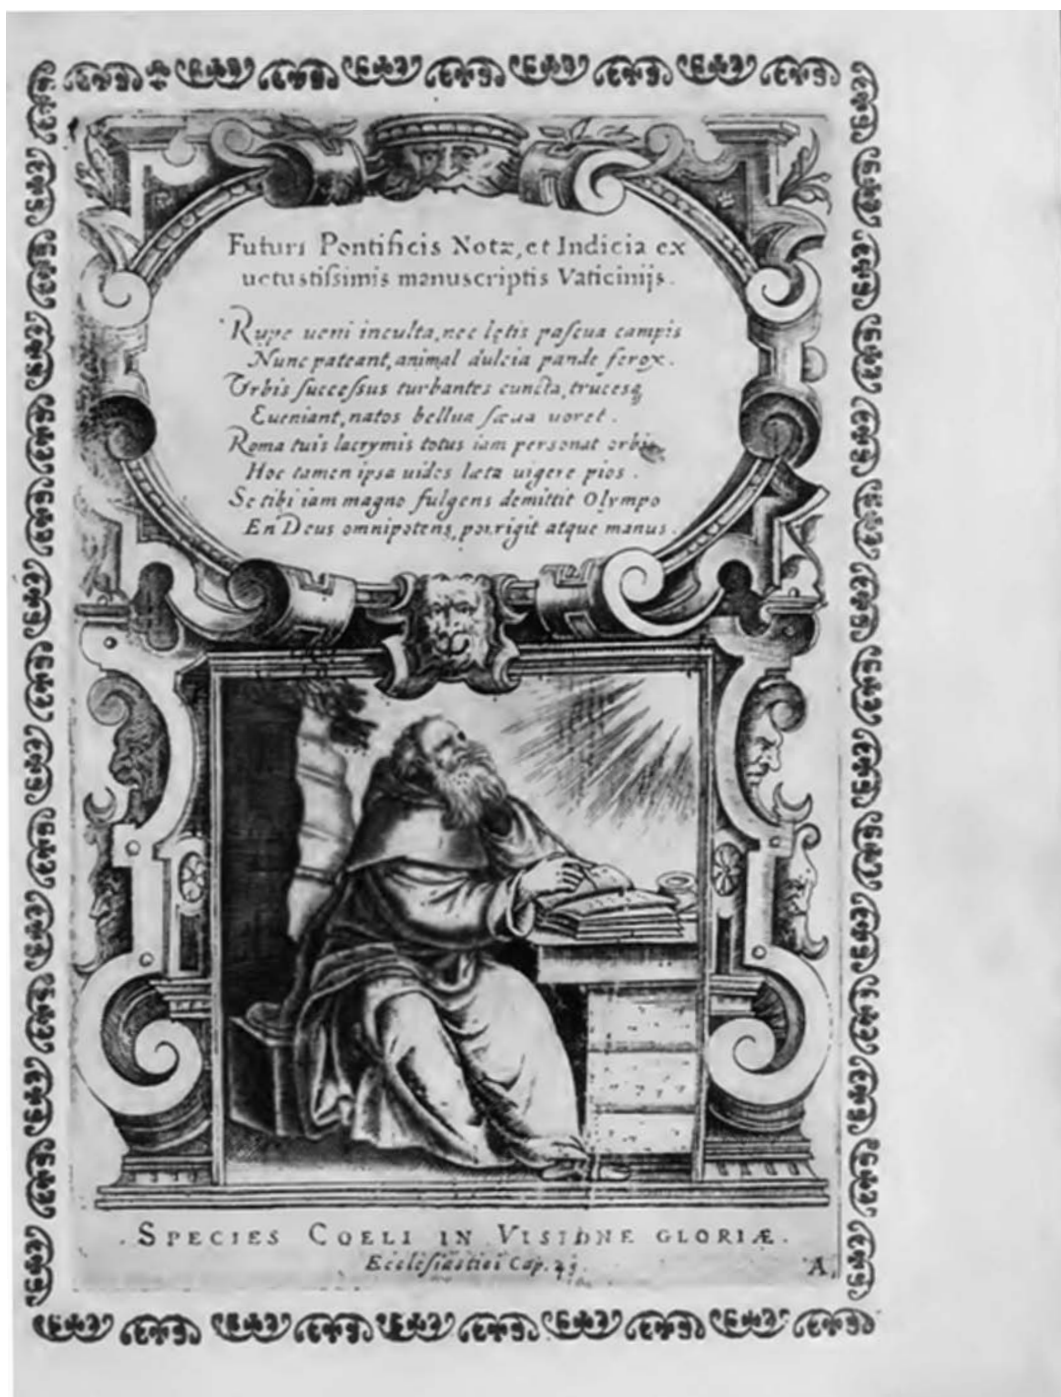 Futuri Pontificis Notæ, et Indicia ex
uetustissimis manuscriptis Vaticinijs.
Rupe ueni inculta, nec lętis pascua campis
Nunc pateant, animal dulcia pande ferox.
Vrbis successus turbantes cuncta, trucesq
Eueniant, natos bellua sæua uoret.
Roma tuis lacrymis totus iam personat orbis
Hoc tamen ipsa uides læta uigere pios.
Se tibi iam magno fulgens demittit Olympo
En Deus omnipotens, porrigit atque manus.
SPECIES COELI IN VISIONE GLORIÆ.
Ecclesiastici Cap.
A